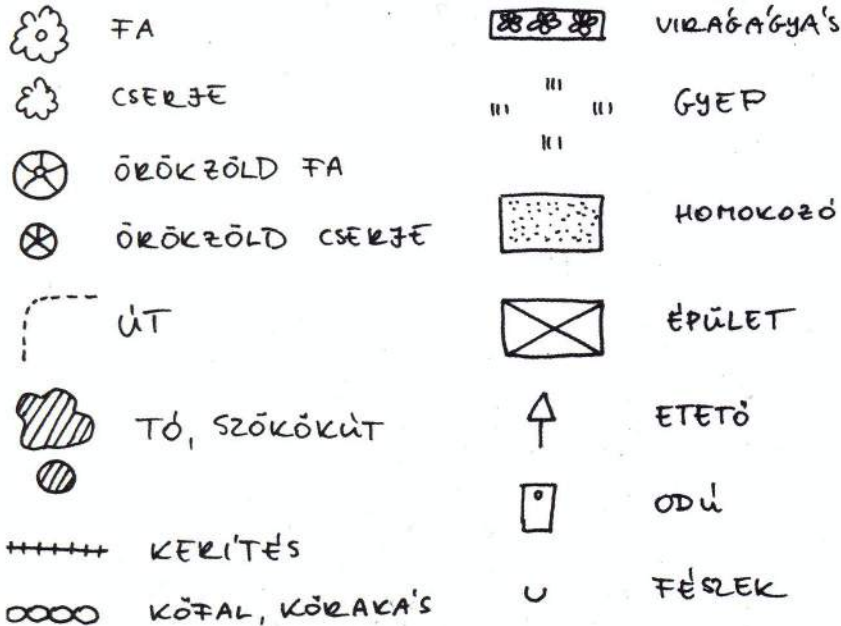 FA
CSERJE
ÖRÖKZÖLD FA
ÖRÖKZÖLD CSERJE
ÚT
TÓ, SZÖKŐKÚT
KERÍTÉS
KŐFAL, KŐRAKÁS
VIRÁGÁGYÁS
GYEP
HOMOKOZÓ
ÉPÜLET
ETETŐ
ODÚ
FÉSZEK